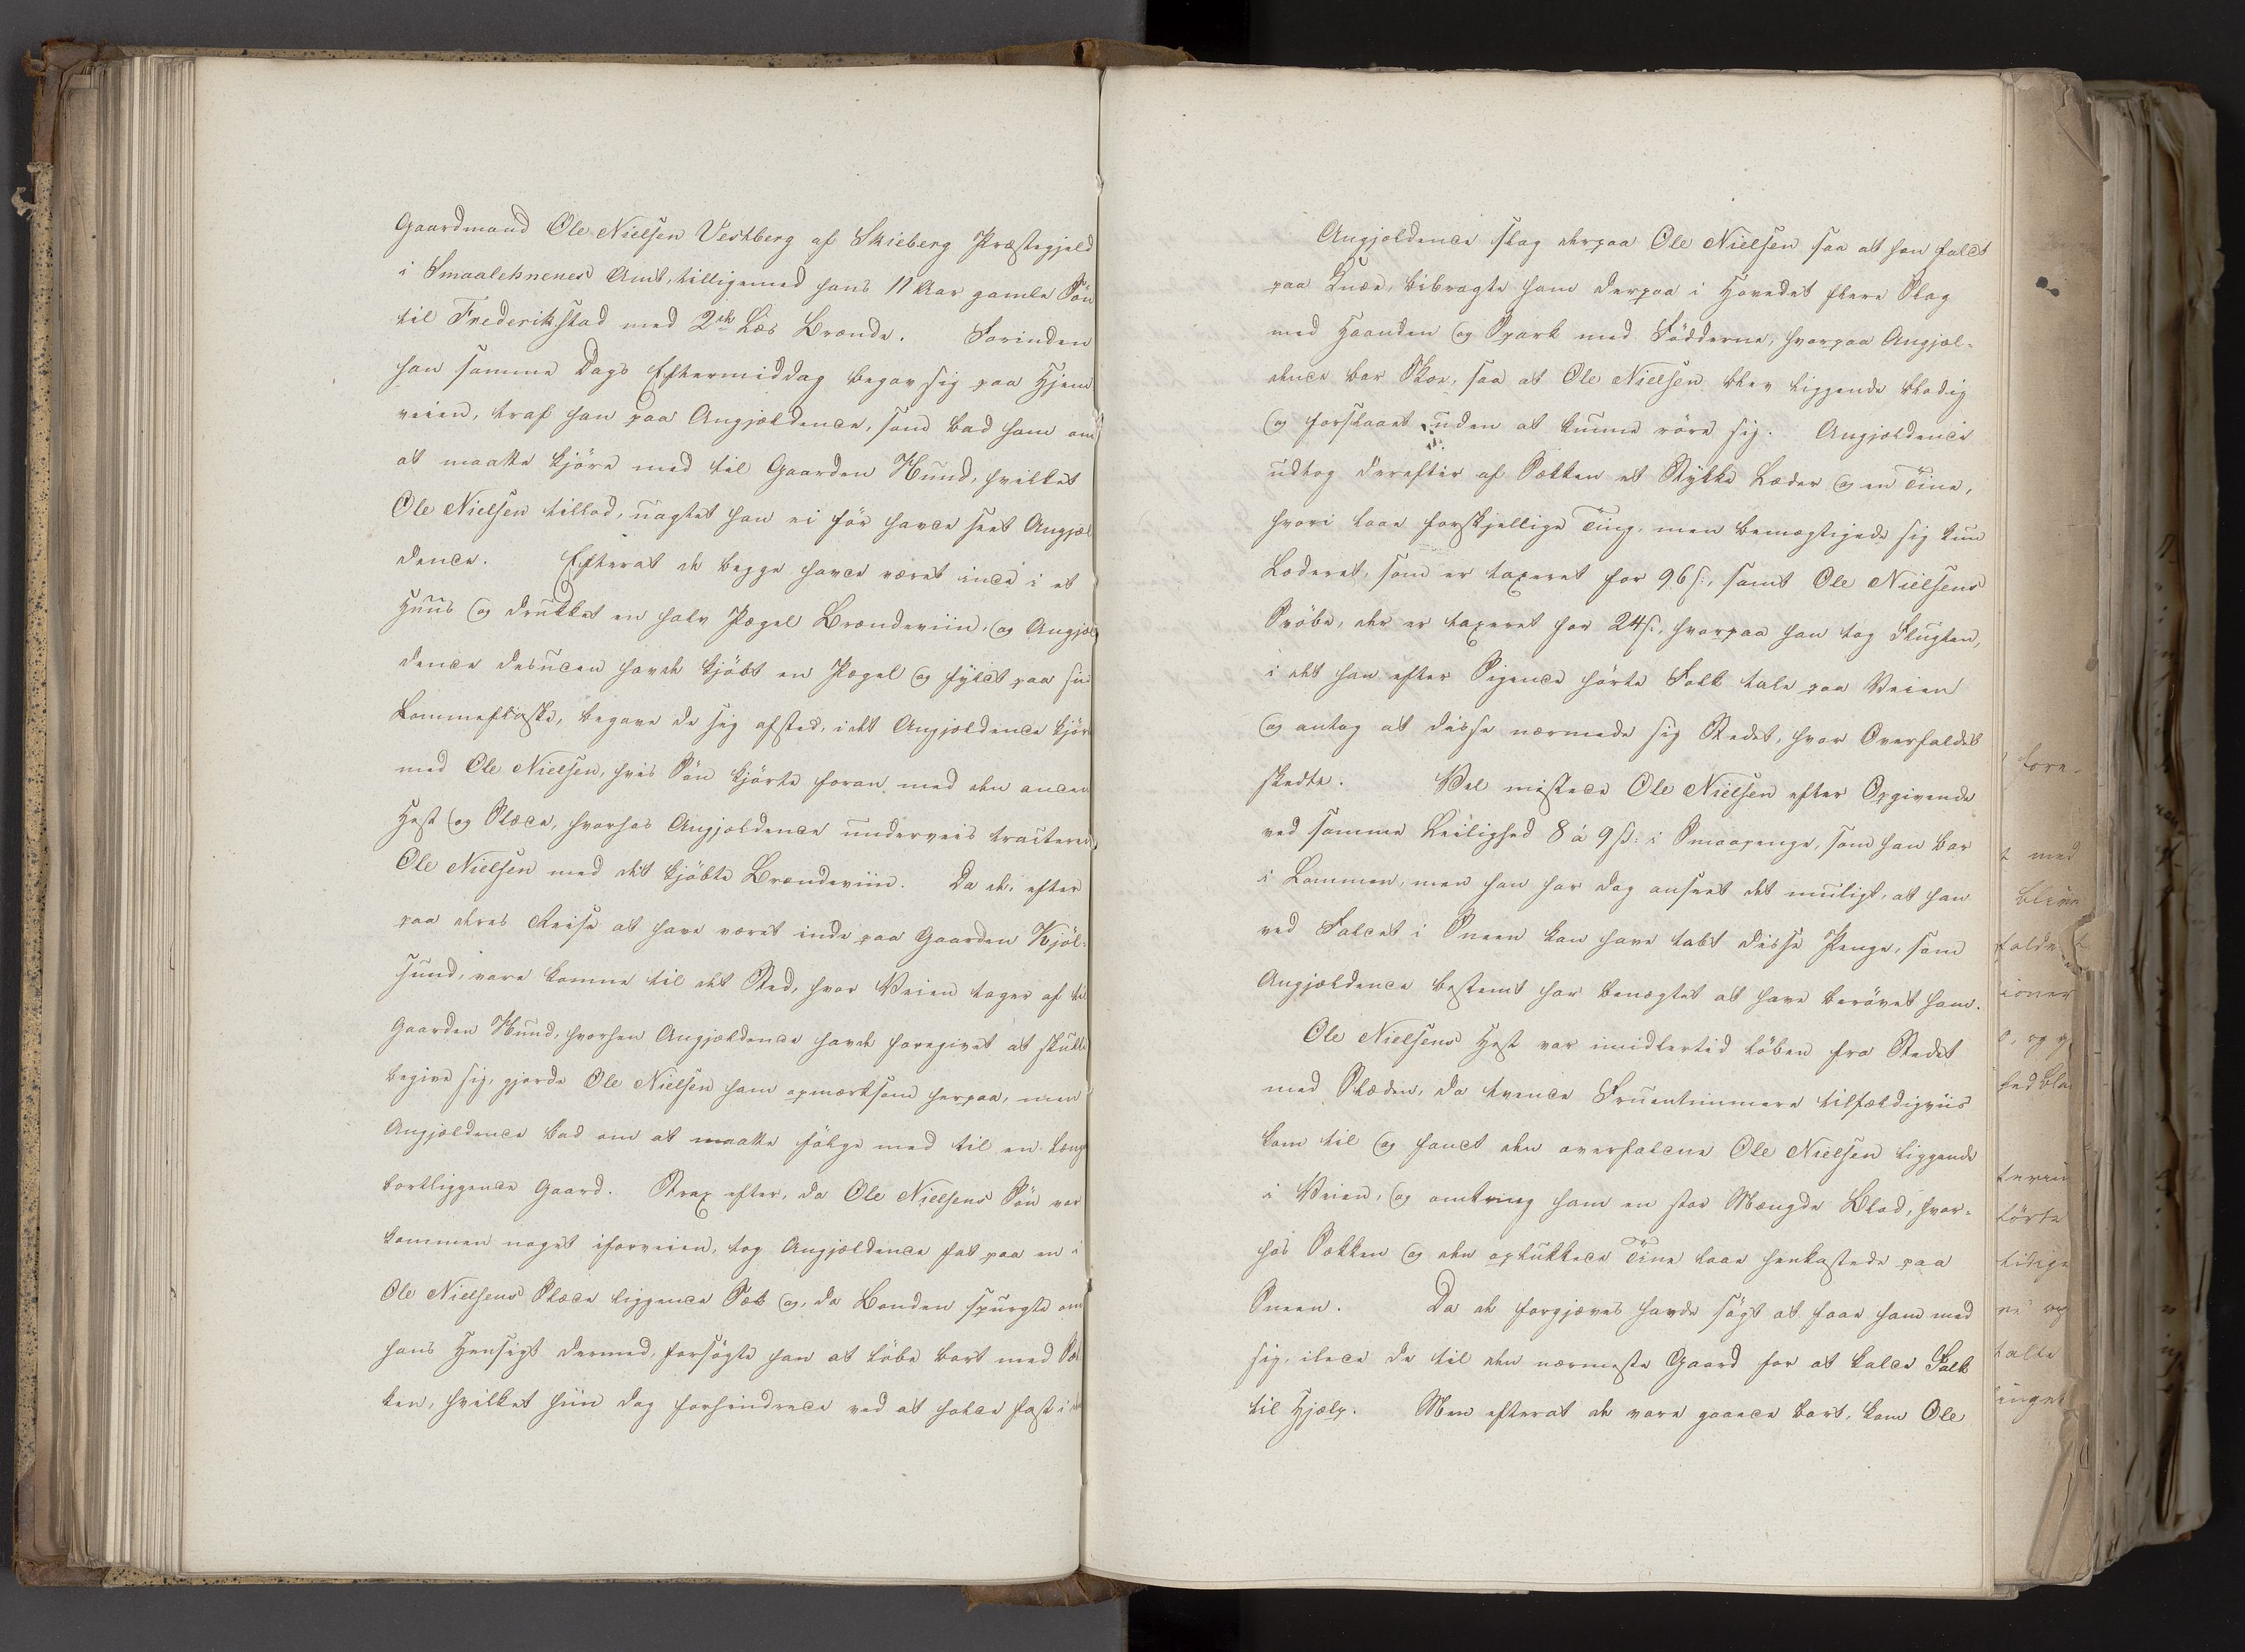 Gaardmand Ole Nielsen Vestberg af Skieberg Præstegjeld
i Smaalehnenes Amt, tilligemed hans 11 Aar gamle Søn
til Frederikstad med 2de Læs Brænde. Forinden
han samme Dags Eftermiddag begav sig paa Hjem
veien, traf han paa Angjældende, som bad ham om
at maatte kjøre med til Gaarden Hund, hvilket
Ole Nielsen tillod, uagtet han ei før havde seet Angjæl
dende. Efterat de begge havde været inde i et
Huus og drukket en halv Pægel Brændeviin, og Angjæl
dende desuden havde kjøbt en Pægel og fyldt paa sin
Lommeflaske, begave de sig afsted, idet Angjældende kjørte
med Ole Nielsen, hvis Søn kjørte foran med den anden
Hest og Slæde, hvorhos Angjældende underveis tracterede
Ole Nielsen med det kjøbte Brændeviin. Da de, efter
paa deres Reise at have været inde paa Gaarden Kjøl-
sund, vare komne til det Sted, hvor Veien tager af til
Gaarden Hund, hvorhen Angjældende havde foregivet at skulle
begive sig, gjorde Ole Nielsen ham opmærksom herpaa, men
Angjældende bad om at maatte følge med til en læng
bortliggende Gaard. Strax efter, da Ole Nielsens Søn var
kommen noget iforveien, tog Angjældende fat paa en i
Ole Nielsens Slæde liggende Sæk og, da Bonden spurgte om
hans Hensigt dermed, forsøgte han at løbe bort med Sæk
ken, hvilket hiin dog forhindrede ved at holde fast i den
Angjældende slog derpaa Ole Nielsen saa at han faldt
paa Knæe, bibragte ham derpaa i Hovedet flere Slag
med Haanden og Spark med Fødderne, hvorpaa Angjæl-
dende bar Skoe, saa at Ole Nielsen blev liggende blodig
og forslaaet uden at kunne røre sig. Angjældende
udtog derefter af Sækken et Stykke Læder og en Tine,
hvori laae forskjellige Ting, men bemægtigede sig kun
Læderet, som er taxeret for 96 ß, samt Ole Nielsens
Svøbe, der er taxeret for 24 ß, hvorpaa han tog Flugten,
i det han efter Sigende hørte Folk tale paa Veien
og antog at disse nærmede sig Stedet, hvor Overfaldet
skedte. Vel mistede Ole Nielsen efter Opgivende
ved samme Leilighed 8 à 9 ß i Smaapenge, som han bar
i Lommen, men han har dog anseet det muligt, at han
ved Faldet i Sneen kan have tabt disse Penge, som
Angjældende bestemt har benægtet at have berøvet ham.
Ole Nielsens Hest var imidlertid løben fra Stedet
med Slæden, da tvende Fruentimmere tilfældigviis
kom til og fandt den overfaldne Ole Nielsen liggende
i Veien, og omkring ham en stor Mængde Blod, hvor-
hos Sækken og den oplukkede Tine laae henkastede paa
Sneen. Da de forgjæves havde søgt at faae ham med
sig, ilede de til den nærmeste Gaard for at kalde Folk
til Hjælp. Men efterat de vare gaaede bort, kom Ole